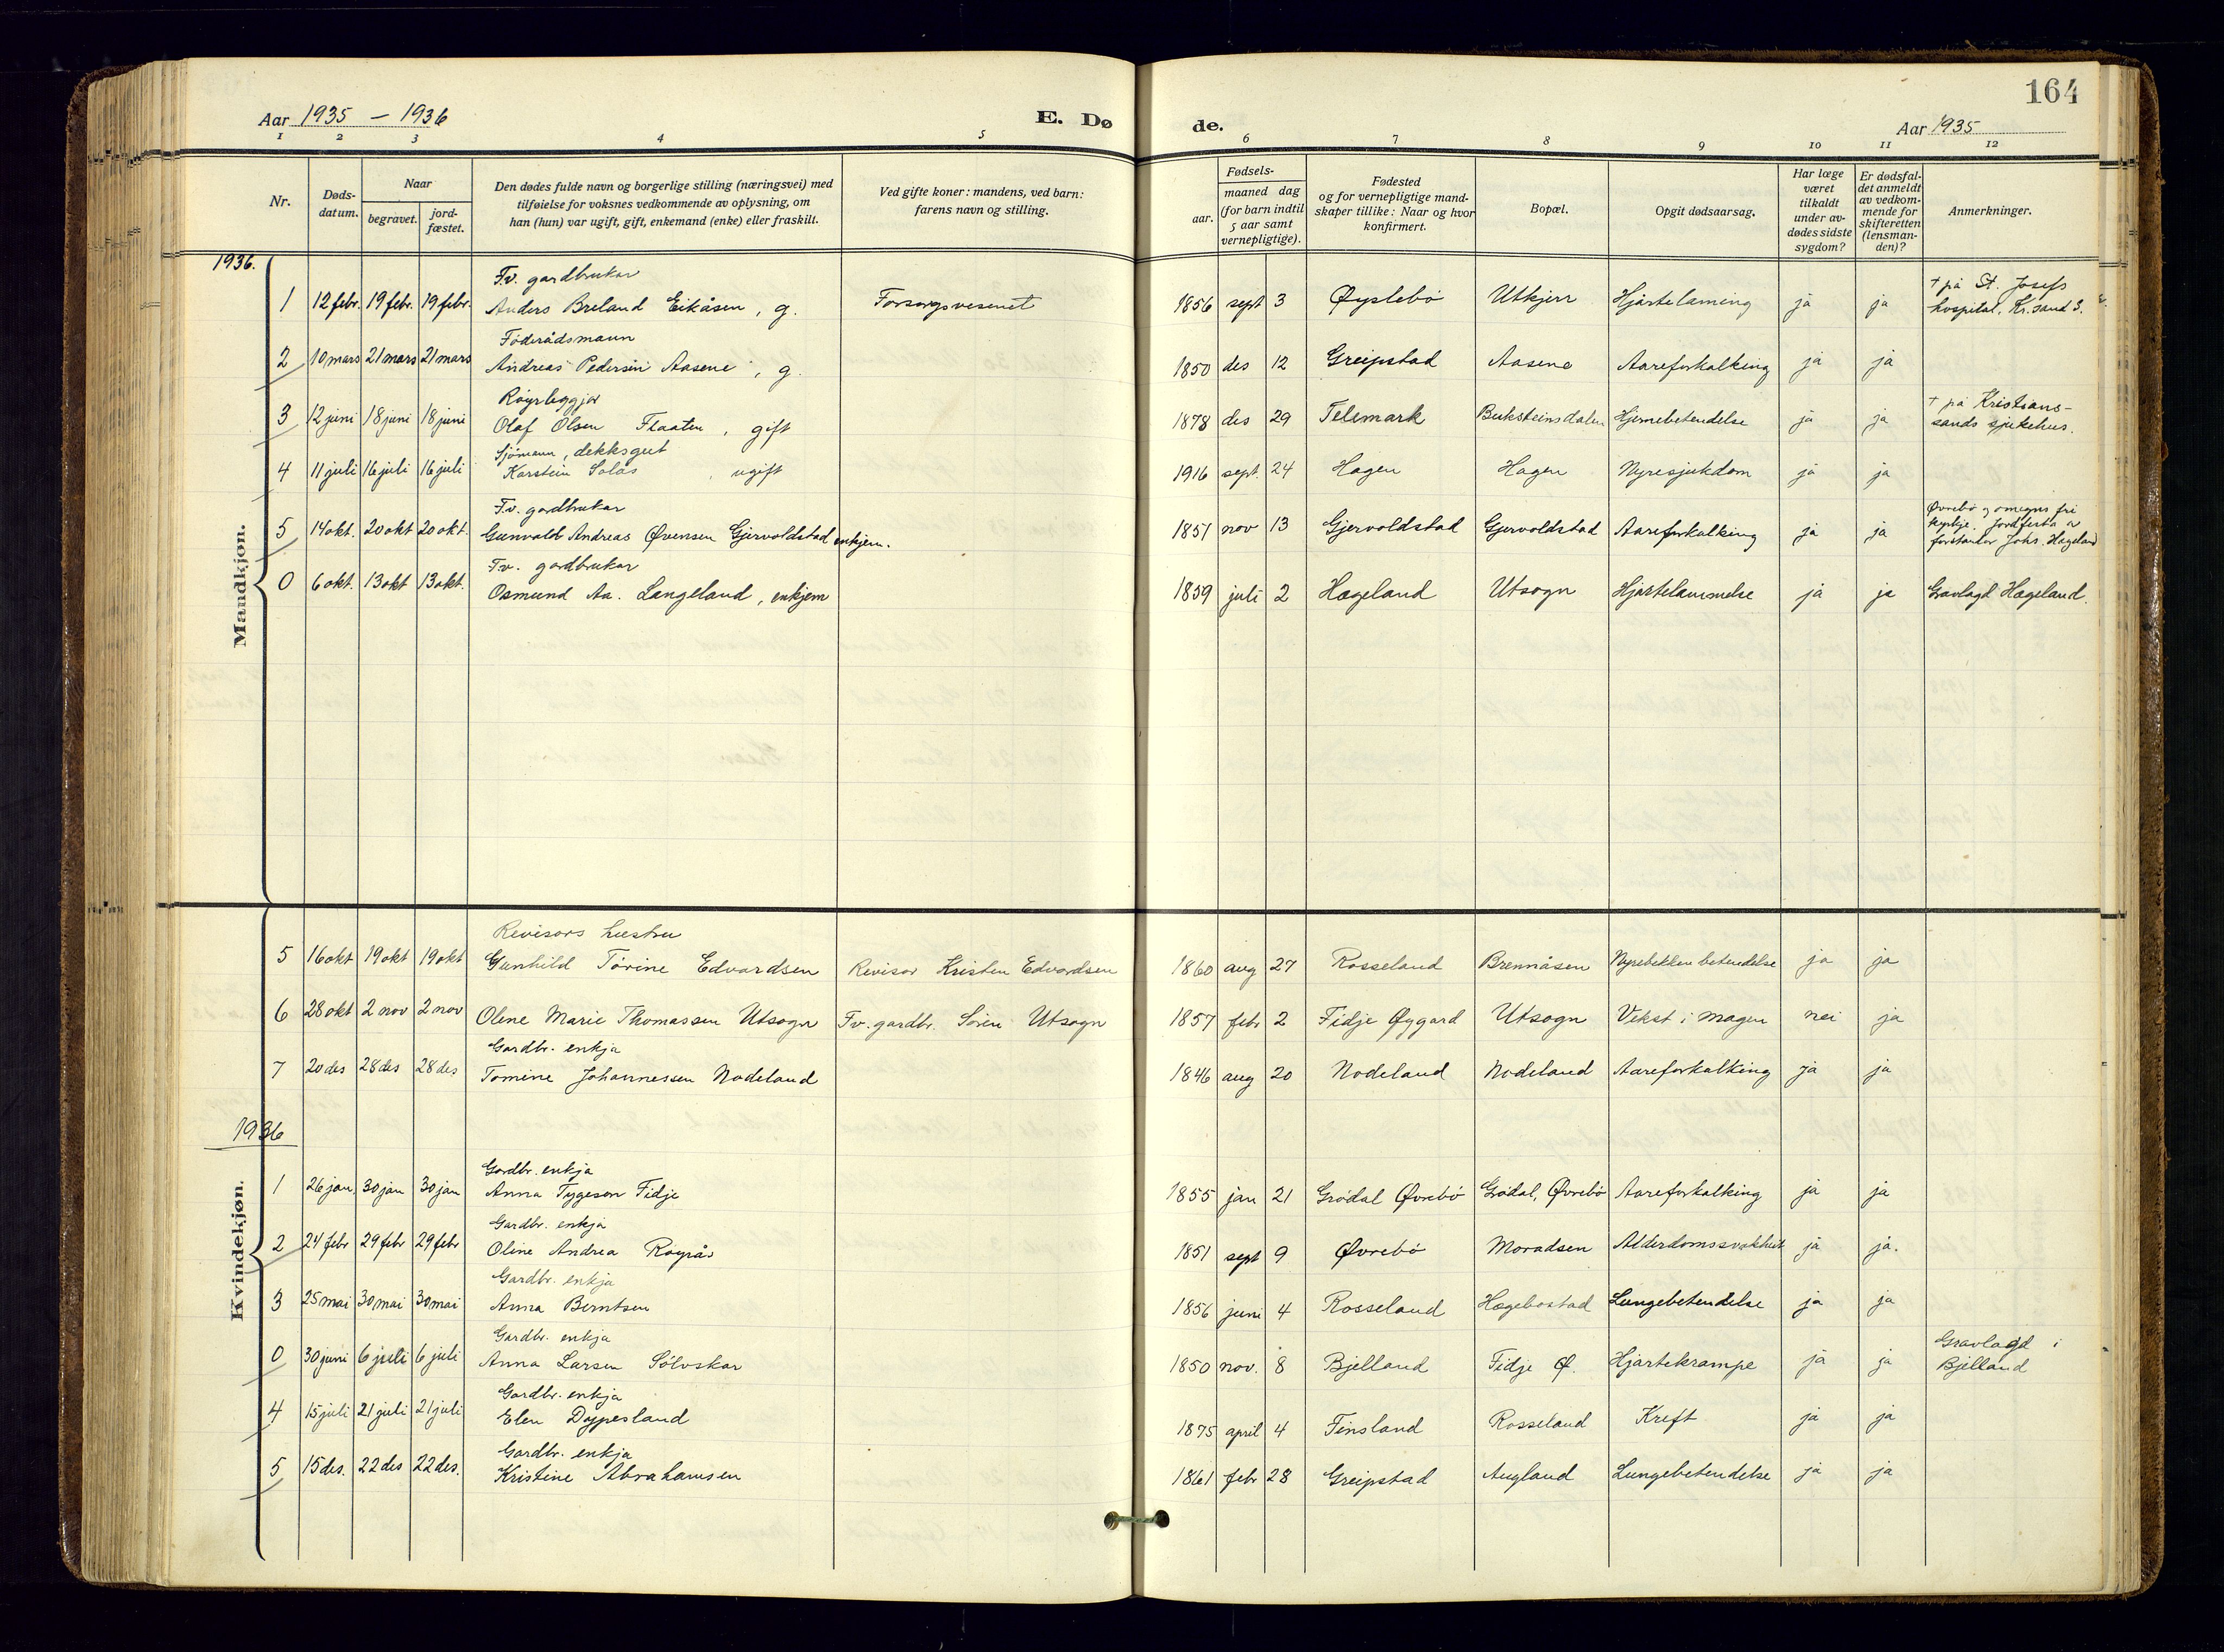 164
Aar 1935 – 1936
E. Dø
de.
Aar 1935
1 2 3 4 5 6 7 8 9 10 11 12
Nr.
Døds-
datum.
Naar
begravet.
jord-
fæstet.
Den dødes fulde navn og borgerlige stilling (næringsvei) med
tilføielse for voksnes vedkommende av oplysning, om
han (hun) var ugift, gift, enkemand (enke) eller fraskilt.
Ved gifte koner: mandens, ved barn:
farens navn og stilling.
Fødsels-
aar.
maaned dag
(for barn indtil
5 aar samt
vernepligtige).
Fødested
og for vernepligtige mand-
skaper tillike: Naar og hvor
konfirmert.
Bopæl.
Opgit dødsaarsag.
Har læge
været
tilkaldt
under av-
dødes sidste
sygdom?
Er dødsfal-
det anmeldt
av vedkom-
mende for
skifteretten
(lensman-
den)?
Anmerkninger.
Mandkjøn.
1936.
Fv. gardbrukar
1 12 febr. 19 febr. 19 febr. Anders Breland Eikåsen, g. Forsorgsvesenet 1856 sept 3 Øyslebö Utkjerr Hjartelaming ja ja † på St. Josefs
hospital, Kr.sand S.
Föderådsmann
2 10 mars 21 mars 21 mars Andreas Pedersen Aasene, g. 1850 des 12 Greipstad Aasene Aareforkalking ja ja
Röyrleggjar
3 12 juni 18 juni 18 juni Olaf Olsen Flaaten, gift 1878 des 29 Telemark Buksteinsdalen Hjernebetendelse ja ja † på Kristians-
sands sjukehus.
Sjömann, dekksgut
4 11 juli 16 juli 16 juli Karstein Solås, ugift 1916 sept. 24 Hagen Hagen Nyresjukdom ja ja
Fv. gardbrukar
5 14 okt. 20 okt 20 okt. Gunvald Andreas Øvensen Gjervoldstad enkjem. 1851 nov 13 Gjervoldstad Gjervoldstad Aareforkalking ja ja Øvrebö og omegns fri
kyrkje. Jordfesta av
forstander Johs. Hageland
Fv. gardbrukar
0 6 okt. 13 okt 13 okt. Osmund Aa. Langeland, enkjem 1859 juli 2 Hægeland Utsogn Hjartelammelse ja ja Gravlagd Hægeland.
Kvindekjøn.
Revisors hustru
5 16 okt 19 okt 19 okt Gunhild Törine Edvardsen Revisor Kristen Edvardsen 1860 aug 27 Rosseland Brennåsen Nyrebekkenbetendelse ja ja
6 28 okt 2 nov 2 nov Olene Marie Thomassen Utsogn Fv. gardbr. Sören Utsogn 1857 febr 2 Fidje Øygard Utsogn Vekst i magen nei ja
Gardbr. enkja
7 20 des 28 des 28 des Tomine Johannessen Nodeland 1846 aug 20 Nodeland Nodeland Aareforkalking ja ja
1936
Gardbr. enkja
1 26 jan. 30 jan 30 jan Anna Tygeson Fidje 1855 jan 21 Grödal Øvrebö Grödal, Øvrebö Aareforkalking ja ja
Gardbr. enkja
2 24 febr 29 febr 29 febr Oline Andrea Röyrås 1851 sept 9 Øvrebö Moradsen Alderdomssvakhet ja ja.
Gardbr. enkja
3 25 mai 30 mai 30 mai Anna Berntsen 1856 juni 4 Rosseland Hægebostad Lungebetendelse ja ja
Gardbr. enkja
0 30 juni 6 juli 6 juli Anna Larsen Sölvskar 1850 nov. 8 Bjelland Fidje Ø. Hjartekrampe ja ja Gravlagd i
Bjelland
Gardbr. enkja
4 15 juli 21 juli 21 juli Elen Døypesland 1875 april 4 Finsland Rosseland Kreft ja ja
Gardbr. enkja
5 15 des. 22 des 22 des. Kristine Abrahamsen 1861 febr 28 Greipstad Augland Lungebetendelse ja ja